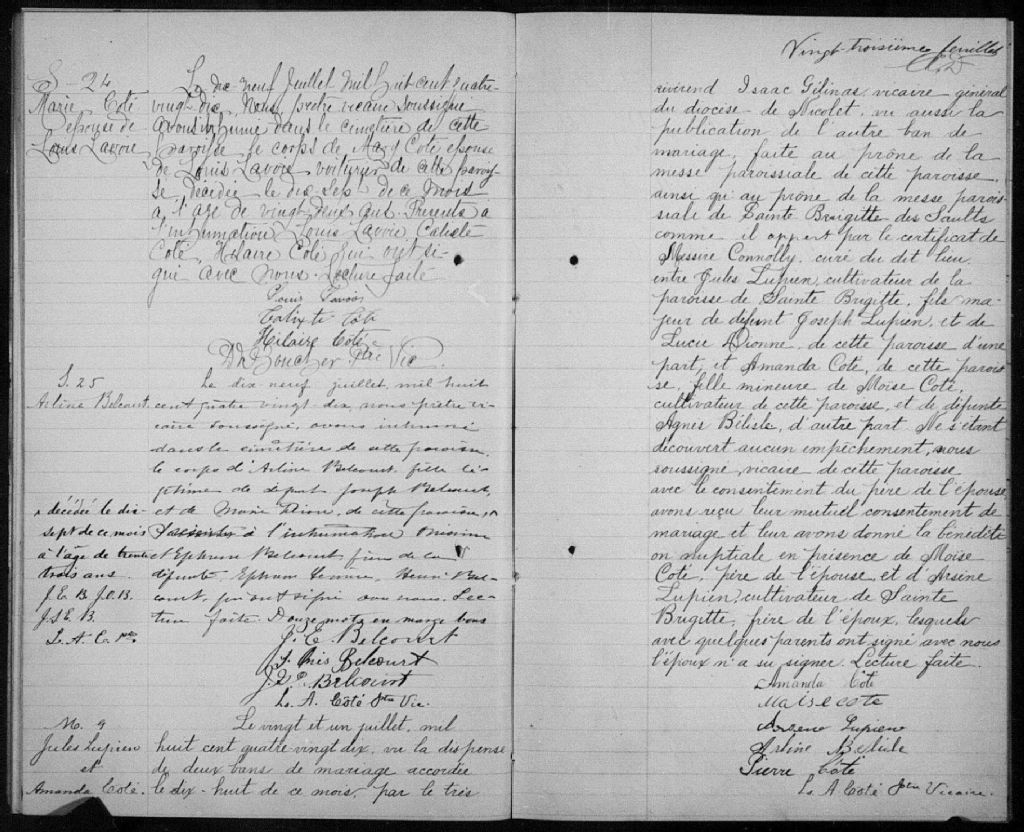 S - 24
Marie Coté
épouse de
Louis Lavoie
Le dix neuf Juillet mil huit cent quatre-
vingt-dix, Nous prêtre vicaire soussigné
avons inhumé dans le cimetière de cette
paroisse le corps de Mary Coté épouse
de Louis Lavoie voiturier de cette parois-
se, décédée le dix sept de ce mois
à l'âge de vingt deux ans. Présents à
l'inhumation Louis Lavoie Calixte
Coté, Hilaire Coté qui ont si-
gné avec nous. Lecture faite
Louis Lavoie
Calixte Coté
Hilaire Coté
Ptre Vic
S. 25
Arline Belcourt.
Le dix-neuf juillet, mil huit
cent quatre vingt-dix, nous prêtre vi-
caire soussigné, avons inhumé
dans le cimetière de cette paroisse,
le corps d'Arline Belcourt, fille lé-
gitime de Joseph Belcourt,
et de Marie de cette paroisse,
à l'inhumation
et Ephrem Belcourt, de la
défunte, Ephrem Henri Bel-
court, qui ont signé avec nous. Lec-
ture faite. Douze mots en marge bons
x décédée le dix-
sept de ce mois
à l'âge de trente
trois ans.
J. E. B. J. O. B.
L. A. C. Ptre
J. E. Belcourt
Belcourt
Belcourt
L. A. Côté Ptre Vic.
M. 9
Jules Lupien
et
Amanda Coté.
Le vingt et un juillet, mil
huit cent quatre-vingt dix, vu la dispense
de deux bans de mariage accordée
le dix-huit de ce mois, par le très
Vingt-troisième feuillet
révérend Isaac Gélinas, vicaire général
du diocèse de Nicolet, vu aussi la
publication de l'autre ban de
mariage, faite au prône de la
messe paroissiale de cette paroisse,
ainsi qu'au prône de la messe parois-
siale de Sainte Braigitte des Saults
comme il appert par le certificat de
Messire Connolly, curé du dit lieu,
entre Jules Lupien, cultivateur de la
paroisse de Sainte Brigitte, fils ma-
jeur de défunt Joseph Lupien, et de
Lucie Dionne, de cette paroisse d'une
part, et Amanda Coté, de cette parois-
se, fille mineure de Moïse Coté,
cultivateur de cette paroisse, et de défunte
Agnès Bélisle, d'autre part. Ne s'étant
découvert aucun empêchement, nous
soussigné, vicaire de cette paroisse
avec le consentement du père de l'épouse
avons reçu leur mutuel consentement de
mariage et leur avons donné la bénédicti-
on nuptiale en présence de Moïse
Coté, père de l'épouse et d'Arsène
Lupien, cultivateur de Sainte
Brigitte, frère de l'époux, lesquels
avec quelques parents ont signé avec nous
l'époux n'a su signer. Lecture faite.
Amanda Coté
Moise cote
Lupien
Arline Bélisle
Pierre Côté
L. A Coté Ptre Vicaire.